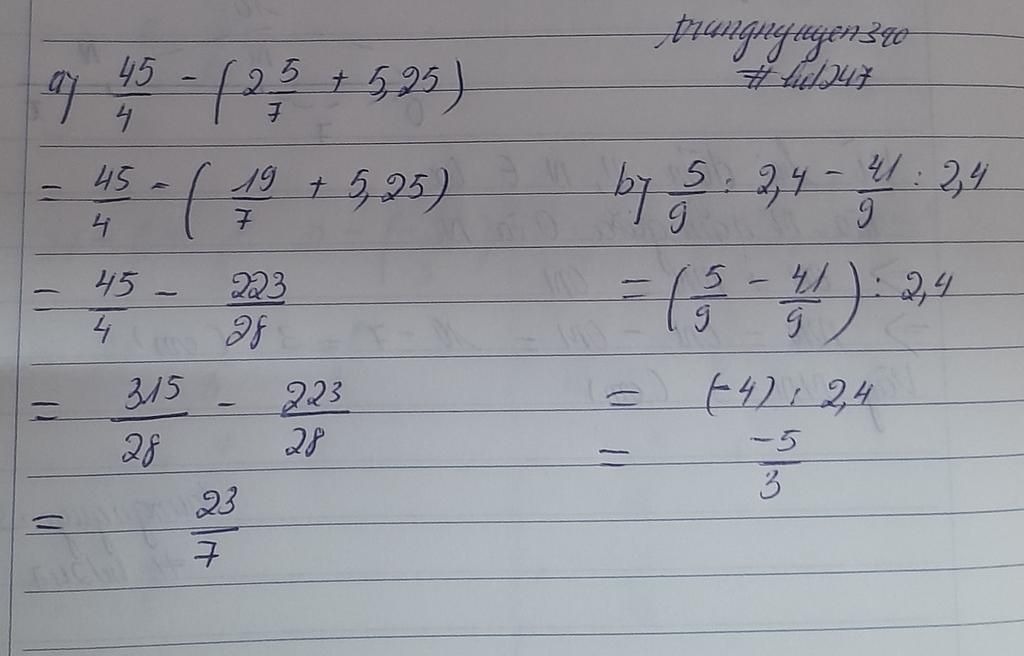 trungnguyen390
# hd247
a) 45/4 - (2 5/7 + 5,25)
= 45/4 - (19/7 + 5,25)
= 45/4 - 223/28
= 315/28 - 223/28
= 23/7
b) 5/9 : 2,4 - 41/9 : 2,4
= (5/9 - 41/9) : 2,4
= (-4) : 2,4
= -5/3